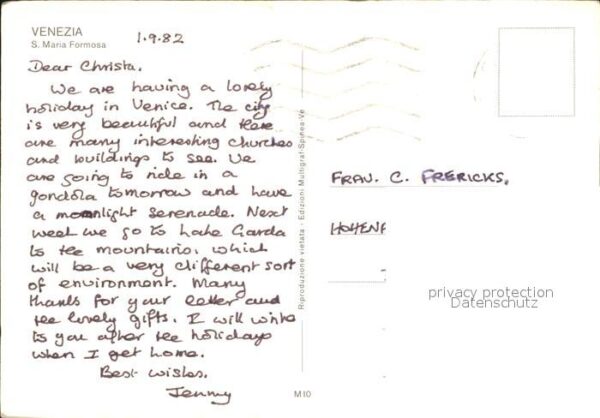 VENEZIA
S. Maria Formosa
1.9.82
Dear Christa,
We are having a lovely
holiday in Venice. The city
is very beautiful and there
are many interesting churches
and buildings to see. We
are going to ride in a
gondola tomorrow and have
a moonlight serenade. Next
week we go to Lake Garda
to the mountains, which
will be a very different sort
of environment. Many
thanks for your letter and
the lovely gifts. I will write
to you after the holidays
when I get home.
Best wishes,
Jenny
Riproduzione vietata - Edizioni Multigraf-Spinea-Ve
M10
FRAU. C. FRERICKS,
HOHENF
privacy protection
Datenschutz